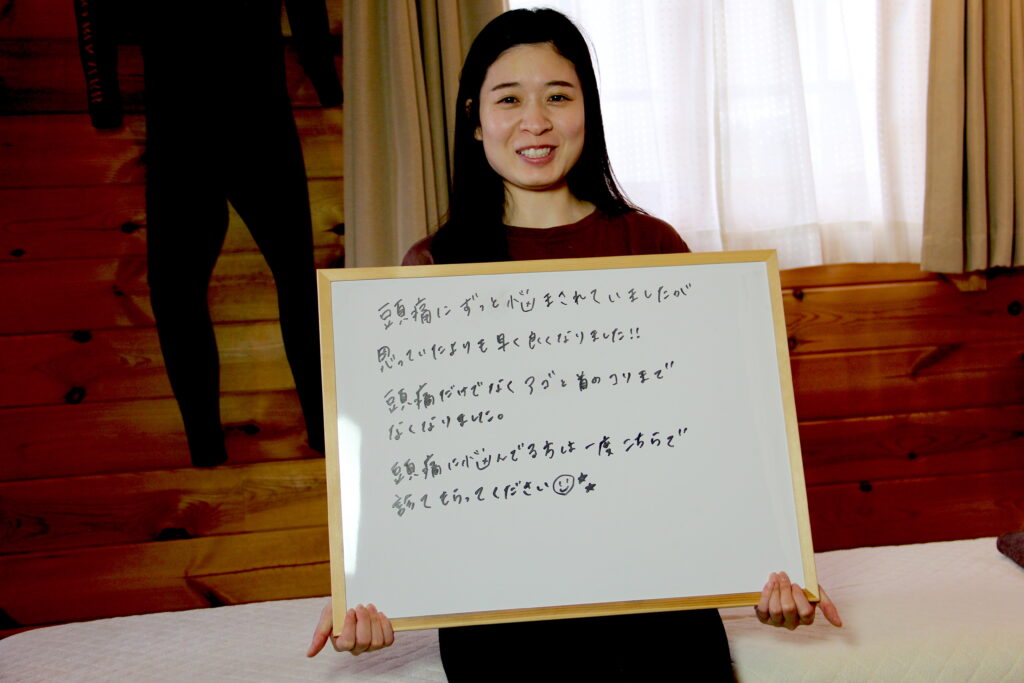 頭痛にずっと悩まされていましたが
思っていたよりも早く良くなりました!!
頭痛だけでなくアゴと首のコリまで
なくなりました。
頭痛に悩んでる方は一度こちらで
診てもらってください